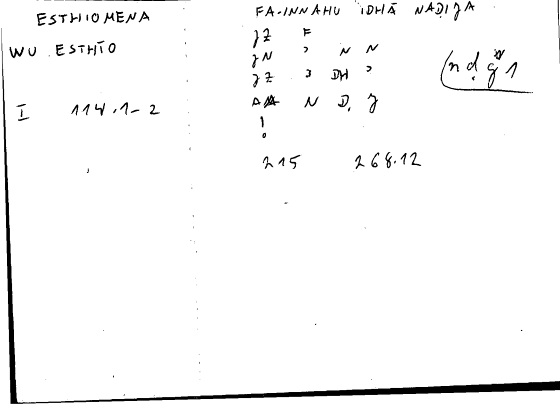 ESTHIOMENA
WU ESTHĪO
I 114.1-2
FA-INNAHU IDHĀ NADIJA
JZ F
JN ' N N
JZ ' DH '
N Ḍ J
!
215 268.12
nḍǧ 1